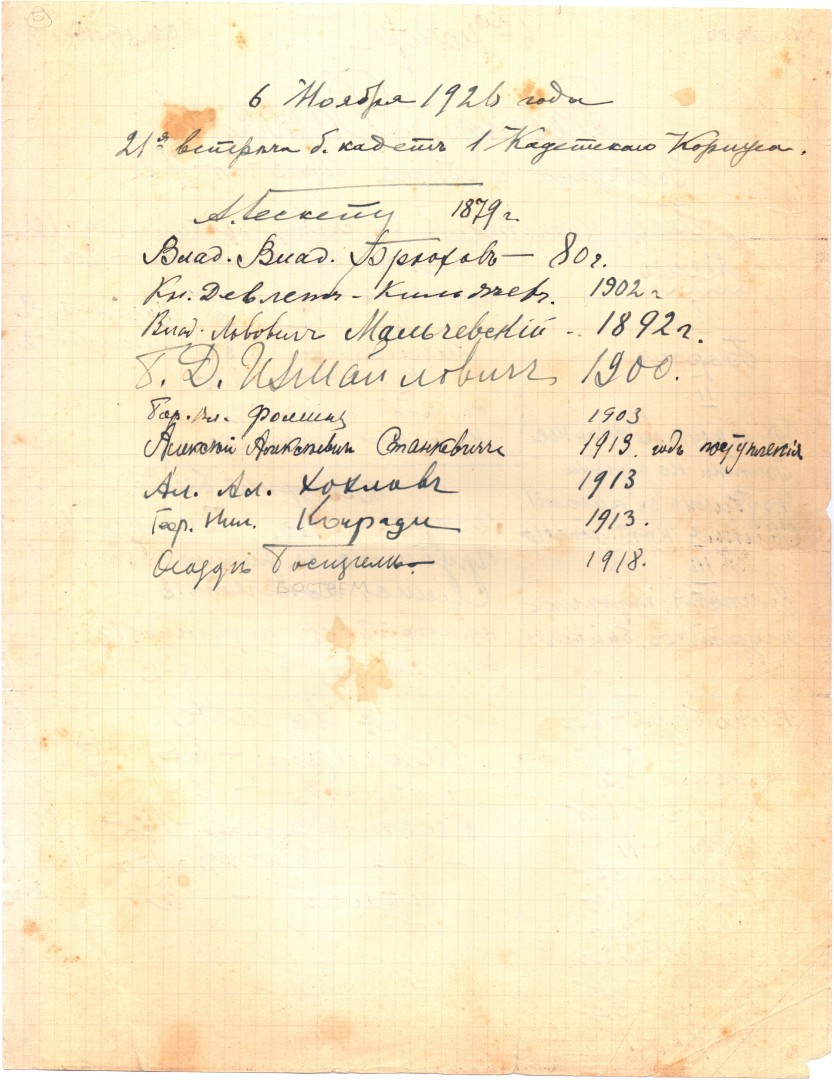 6 Ноября 1926 года
21я встреча б. кадетъ 1 Кадетскаго Корпуса.
А. Гескетъ 1879 г.
Влад. Влад. Брюховъ — 80 г.
Кн. Девлетъ-Кильдѣев. 1902 г
Влад. Львовичъ Мальчевскій - 1892 г.
Г. Д. Измайловичъ 1900.
Вл. Фомин 1903
Алексѣй Алексѣевич Станкевичъ 1913. годъ поступленія
Ал. Ал. Хохловъ 1913
Геор. Ник. Конради 1913.
1918.